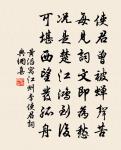 使君曾被蟬聲苦
每見詞文即為愁
況是楚江鴻到後
可堪西望發孤舟
黃滔寓江州李使君詞
典網集